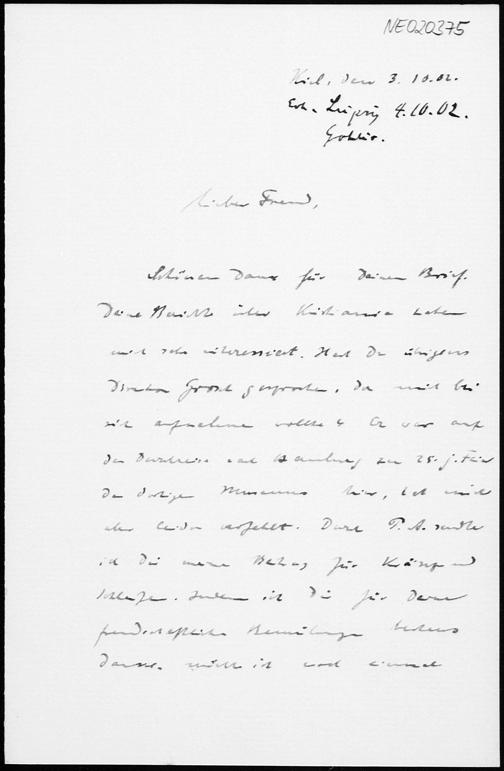 NE020375
Kiel, den 3. 10. 02.
Erh. Leipzig 4.10.02.
Gohlis.
Lieber Freund,
Schönen Dank für Deinen Brief.
Deine Berichte über Kristiania haben
mich sehr interessiert. Hast Du übrigens
Direktor Grosch gesprochen, der mich bei
sich aufnehmen wollte? Er war auf
der Durchreise nach Hamburg zur 25. j. Feier
des dortigen Museums hier, hat mich
aber leider verfehlt. Durch P. A. sandte
ich Dir meine Beitrag für und
Schleife. Indem ich Dir für Deine
freundschaftlichen Bemühungen bestens
danke, möchte ich noch einmal